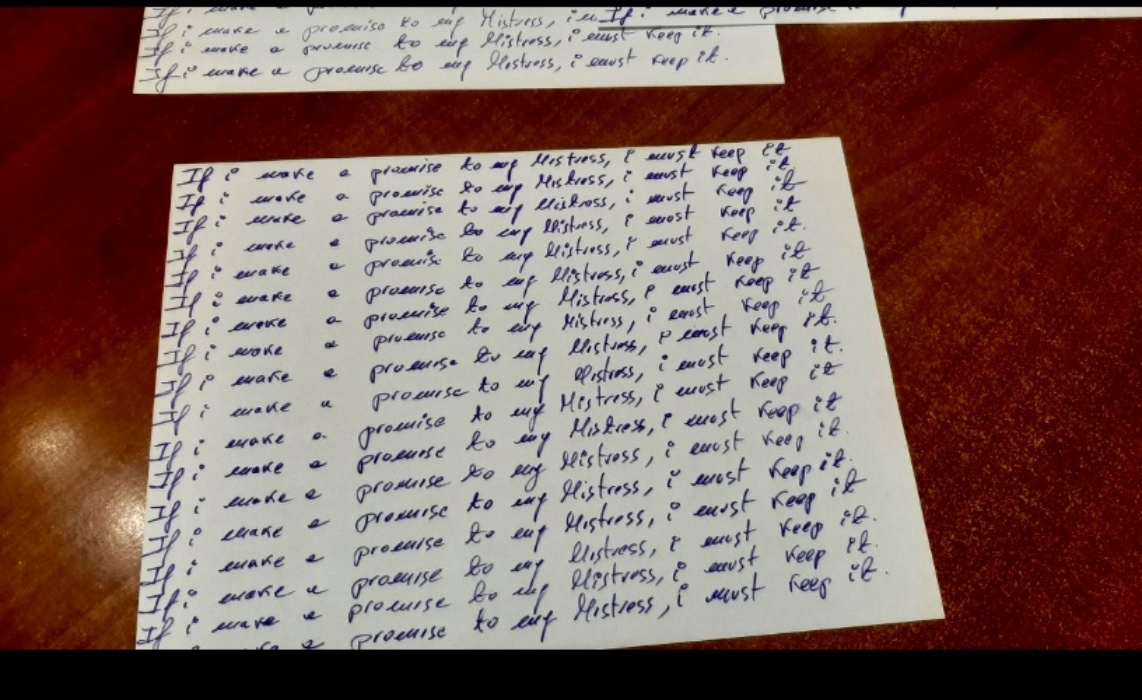 If i make a promise to my Mistress, i
If i make a promise
If i make a promise to my Mistress, i must keep it.
If i make a promise to my Mistress, i must keep it.
If i make a promise to my Mistress, i must keep it
If i make a promise to my Mistress, i must keep it
If i make a promise to my Mistress, i must keep it
If i make a promise to my Mistress, i must keep it
If i make a promise to my Mistress, i must keep it.
If i make a promise to my Mistress, i must keep it
If i make a promise to my Mistress, i must keep it
If i make a promise to my Mistress, i must keep it
If i make a promise to my Mistress, i must keep it.
If i make a promise to my Mistress, i must keep it.
If i make a promise to my Mistress, i must keep it
If i make a promise to my Mistress, i must keep it
If i make a promise to my Mistress, i must keep it.
If i make a promise to my Mistress, i must keep it.
If i make a promise to my Mistress, i must keep it
If i make a promise to my Mistress, i must keep it.
If i make a promise to my Mistress, i must keep it.
make a promise to my Mistress, i must keep it.